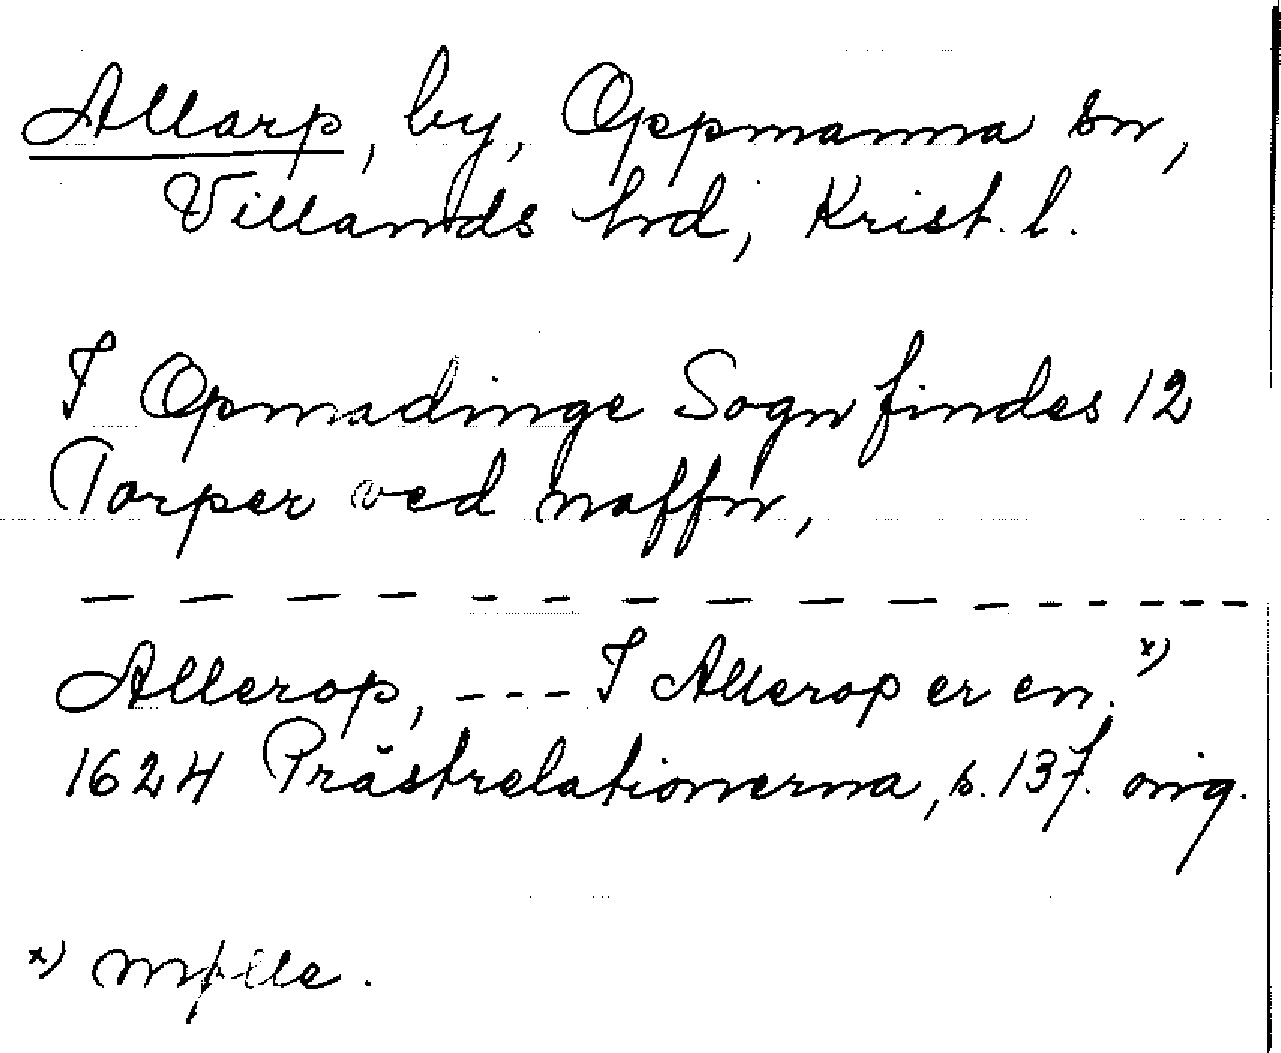 Allarp, by, Oppmanna sn,
Villands hrd, Krist. l.
I Opmadinge Sogn findes 12
Torper ved naffn,
— — — — - - — — — — — - - - - -
Allerop, --- I Allerop er en. x)
1624 Prästrelationerna, s. 137. orig.
x) Mølle.